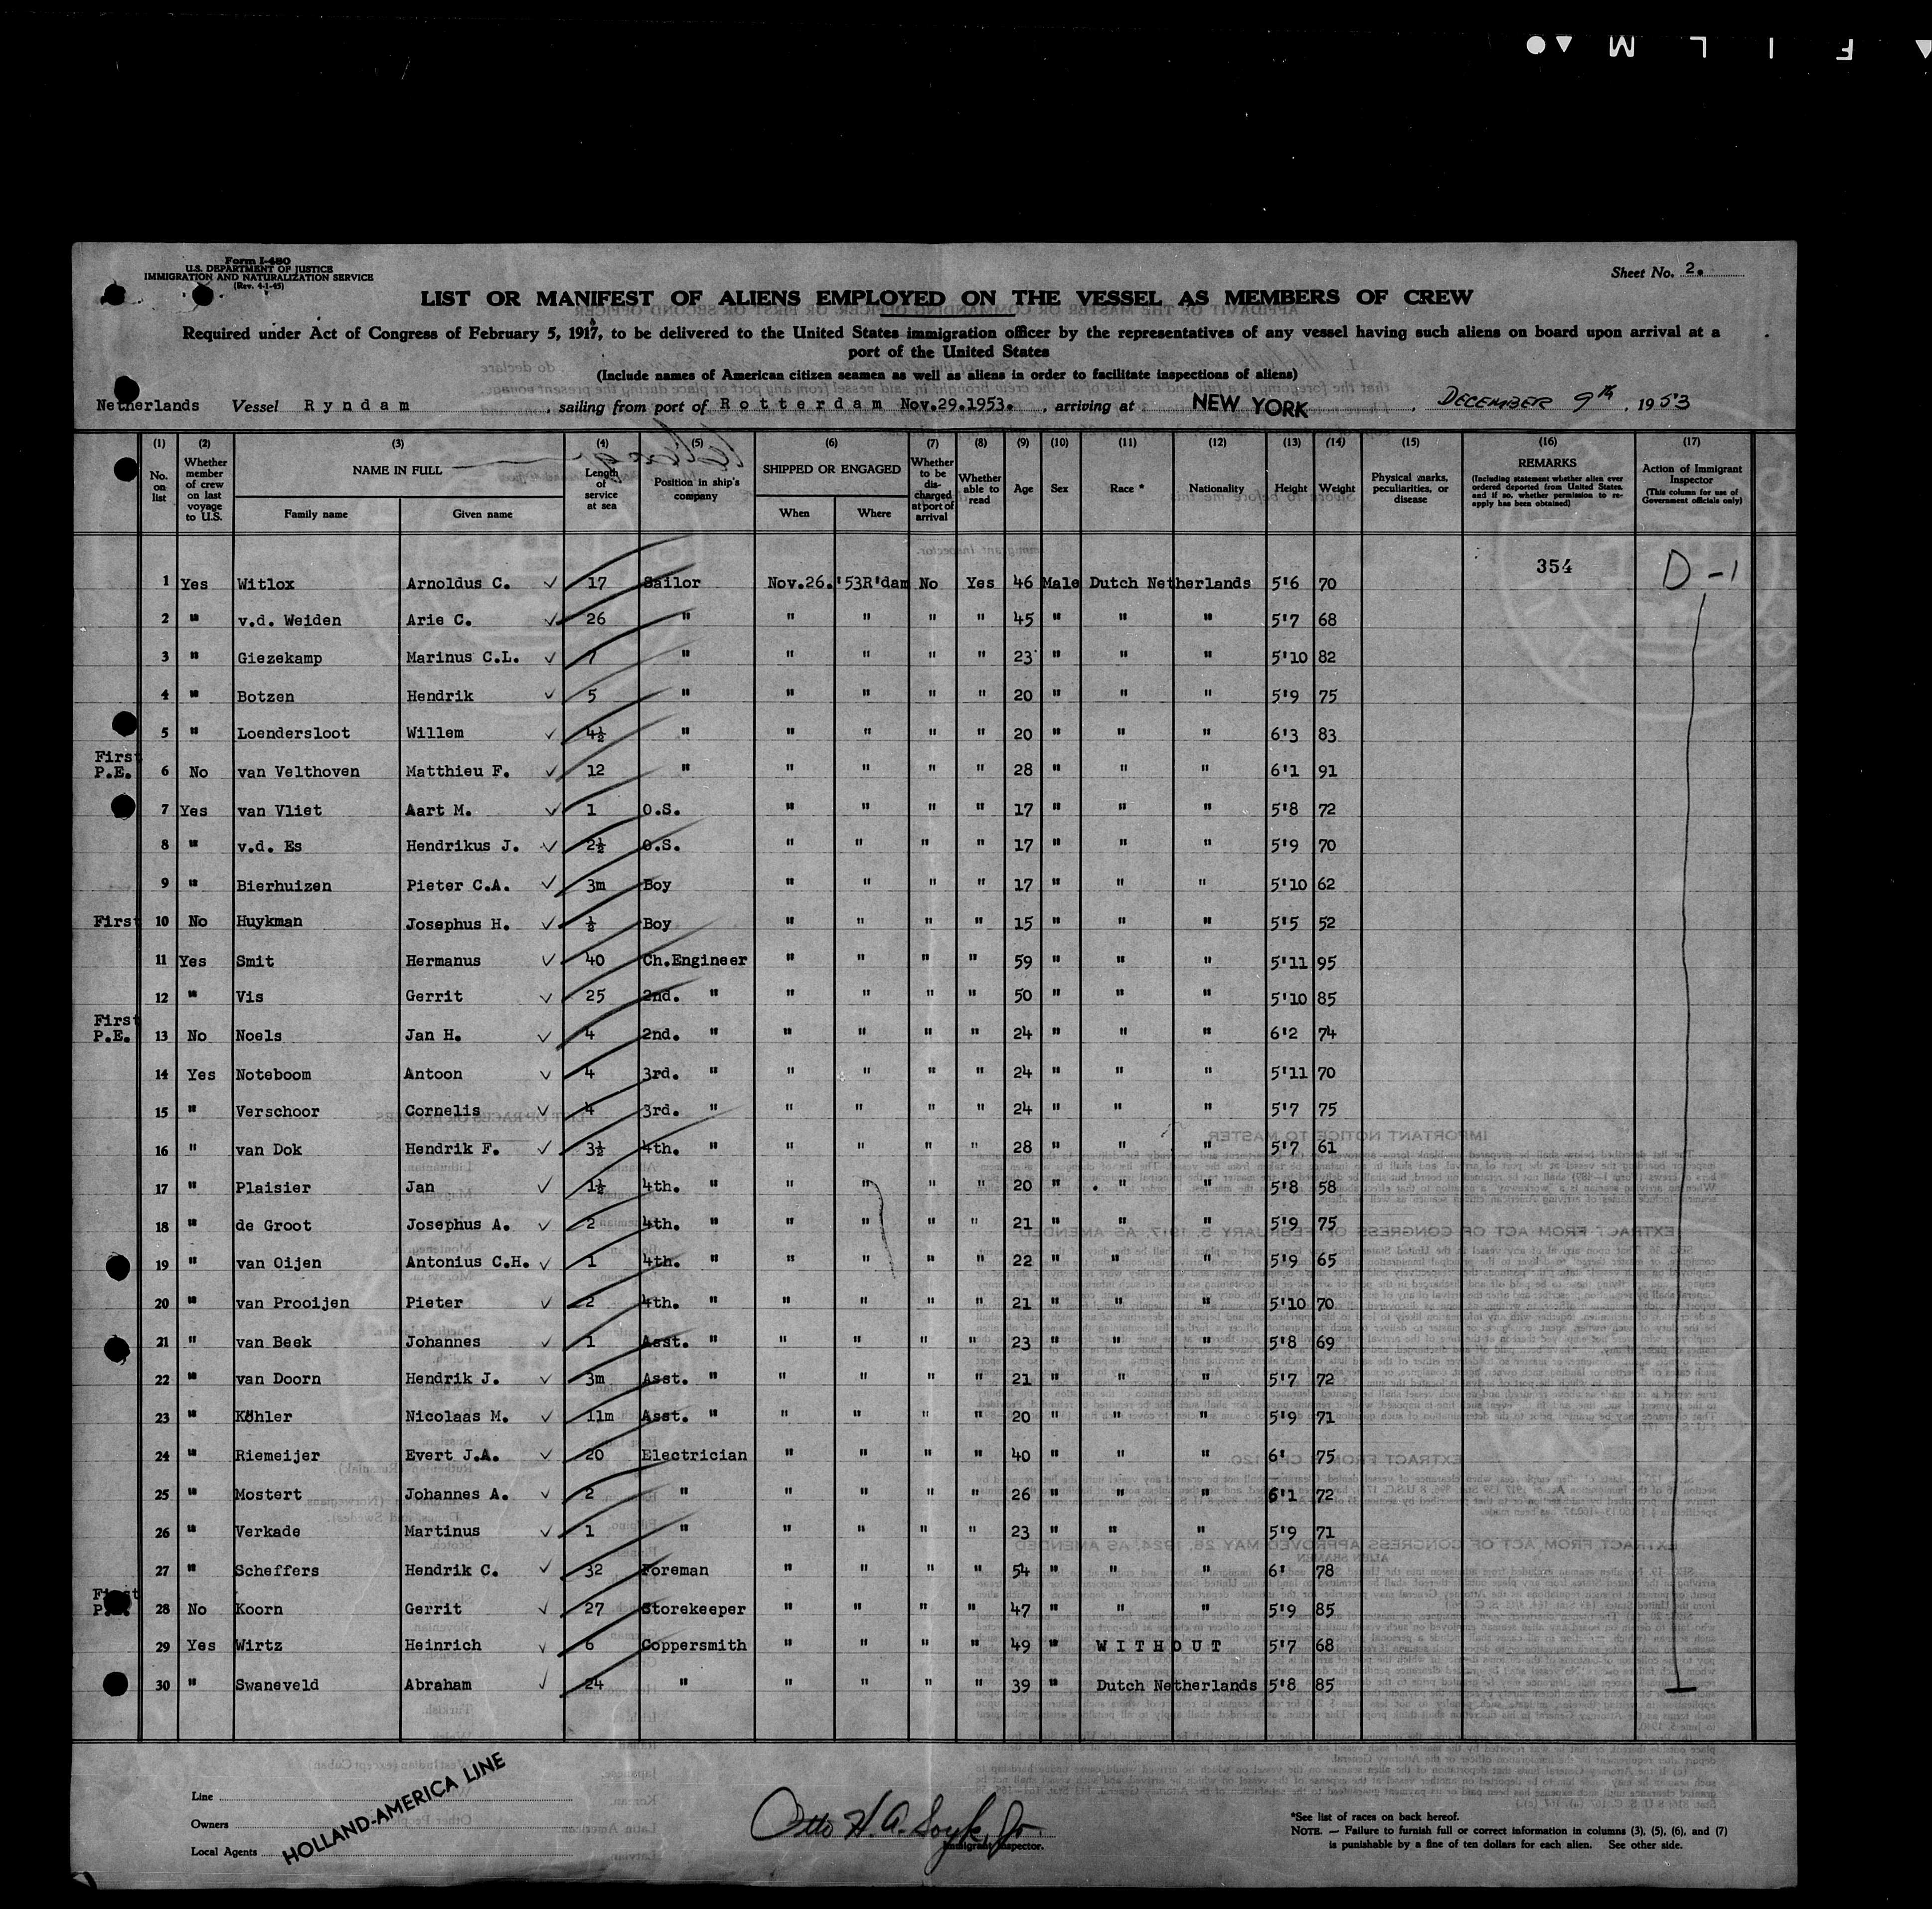 F I L M
Form I-480
U.S. DEPARTMENT OF JUSTICE
IMMIGRATION AND NATURALIZATION SERVICE
(Rev. 4-1-45)
Sheet No. 2.
LIST OR MANIFEST OF ALIENS EMPLOYED ON THE VESSEL AS MEMBERS OF CREW
Required under Act of Congress of February 5, 1917, to be delivered to the United States immigration officer by the representatives of any vessel having such aliens on board upon arrival at a
port of the United States
(Include names of American citizen seamen as well as aliens in order to facilitate inspections of aliens)
Netherlands Vessel Ryndam, sailing from port of Rotterdam Nov.29.1953., arriving at NEW YORK, DECEMBER 9th, 1953
(1) (2) (3) (4) (5) (6) (7) (8) (9) (10) (11) (12) (13) (14) (15) (16) (17)
No. on list Whether member of crew on last voyage to U.S. NAME IN FULL Family name Given name Length of service at sea Position in ship's company SHIPPED OR ENGAGED When Where Whether to be discharged at port of arrival Whether able to read Age Sex Race * Nationality Height Weight Physical marks, peculiarities, or disease REMARKS (Including statement whether alien ever ordered deported from United States, and if so, whether permission to reapply has been obtained) Action of Immigrant Inspector (This column for use of Government officials only)
354
1 Yes Witlox Arnoldus C. ✓ 17 Sailor Nov.26.'53 R'dam No Yes 46 Male Dutch Netherlands 5'6 70 D-1
2 " v.d. Weiden Arie C. ✓ 26 " " " " " 45 " " " 5'7 68
3 " Giezekamp Marinus C.L. ✓ 7 " " " " " 23 " " " 5'10 82
4 " Botzen Hendrik ✓ 5 " " " " " 20 " " " 5'9 75
5 " Loendersloot Willem ✓ 4½ " " " " " 20 " " " 6'3 83
First
P.E. 6 No van Velthoven Matthieu F. ✓ 12 " " " " " 28 " " " 6'1 91
7 Yes van Vliet Aart M. ✓ 1 O.S. " " " " 17 " " " 5'8 72
8 " v.d. Es Hendrikus J. ✓ 2½ O.S. " " " " 17 " " " 5'9 70
9 " Bierhuizen Pieter C.A. ✓ 3m Boy " " " " 17 " " " 5'10 62
First 10 No Huykman Josephus H. ✓ ½ Boy " " " " 15 " " " 5'5 52
11 Yes Smit Hermanus ✓ 40 Ch.Engineer " " " " 59 " " " 5'11 95
12 " Vis Gerrit ✓ 25 2nd. " " " " " 50 " " " 5'10 85
First
P.E. 13 No Noels Jan H. ✓ 4 2nd. " " " " " 24 " " " 6'2 74
14 Yes Noteboom Antoon ✓ 4 3rd. " " " " " 24 " " " 5'11 70
15 " Verschoor Cornelis ✓ 4 3rd. " " " " " 24 " " " 5'7 75
16 " van Dok Hendrik F. ✓ 3½ 4th. " " " " " 28 " " " 5'7 61
17 " Plaisier Jan ✓ 1½ 4th. " " " " " 20 " " " 5'8 58
18 " de Groot Josephus A. ✓ 2 4th. " " " " " 21 " " " 5'9 75
19 " van Oijen Antonius C.H. ✓ 1 4th. " " " " " 22 " " " 5'9 65
20 " van Prooijen Pieter ✓ 2 4th. " " " " " 21 " " " 5'10 70
21 " van Beek Johannes ✓ 1 Asst. " " " " " 23 " " " 5'8 69
22 " van Doorn Hendrik J. ✓ 3m Asst. " " " " " 21 " " " 5'7 72
23 " Köhler Nicolaas M. ✓ 11m Asst. " " " " " 20 " " " 5'9 71
24 " Riemeijer Evert J.A. ✓ 20 Electrician " " " " 40 " " " 6' 75
25 " Mostert Johannes A. ✓ 2 " " " " " 26 " " " 6'1 72
26 " Verkade Martinus ✓ 1 " " " " " 23 " " " 5'9 71
27 " Scheffers Hendrik C. ✓ 32 Foreman " " " " 54 " " " 6' 78
First
P.E. 28 No Koorn Gerrit ✓ 27 Storekeeper " " " " 47 " " " 5'9 85
29 Yes Wirtz Heinrich ✓ 6 Coppersmith " " " " 49 " WITHOUT 5'7 68
30 " Swaneveld Abraham ✓ 24 " " " " " 39 " Dutch Netherlands 5'8 85
Line
Owners
Local Agents
HOLLAND-AMERICA LINE
Otto H.A. Soyk, Jr.
Immigrant Inspector.
*See list of races on back hereof.
NOTE. — Failure to furnish full or correct information in columns (3), (5), (6), and (7)
is punishable by a fine of ten dollars for each alien. See other side.